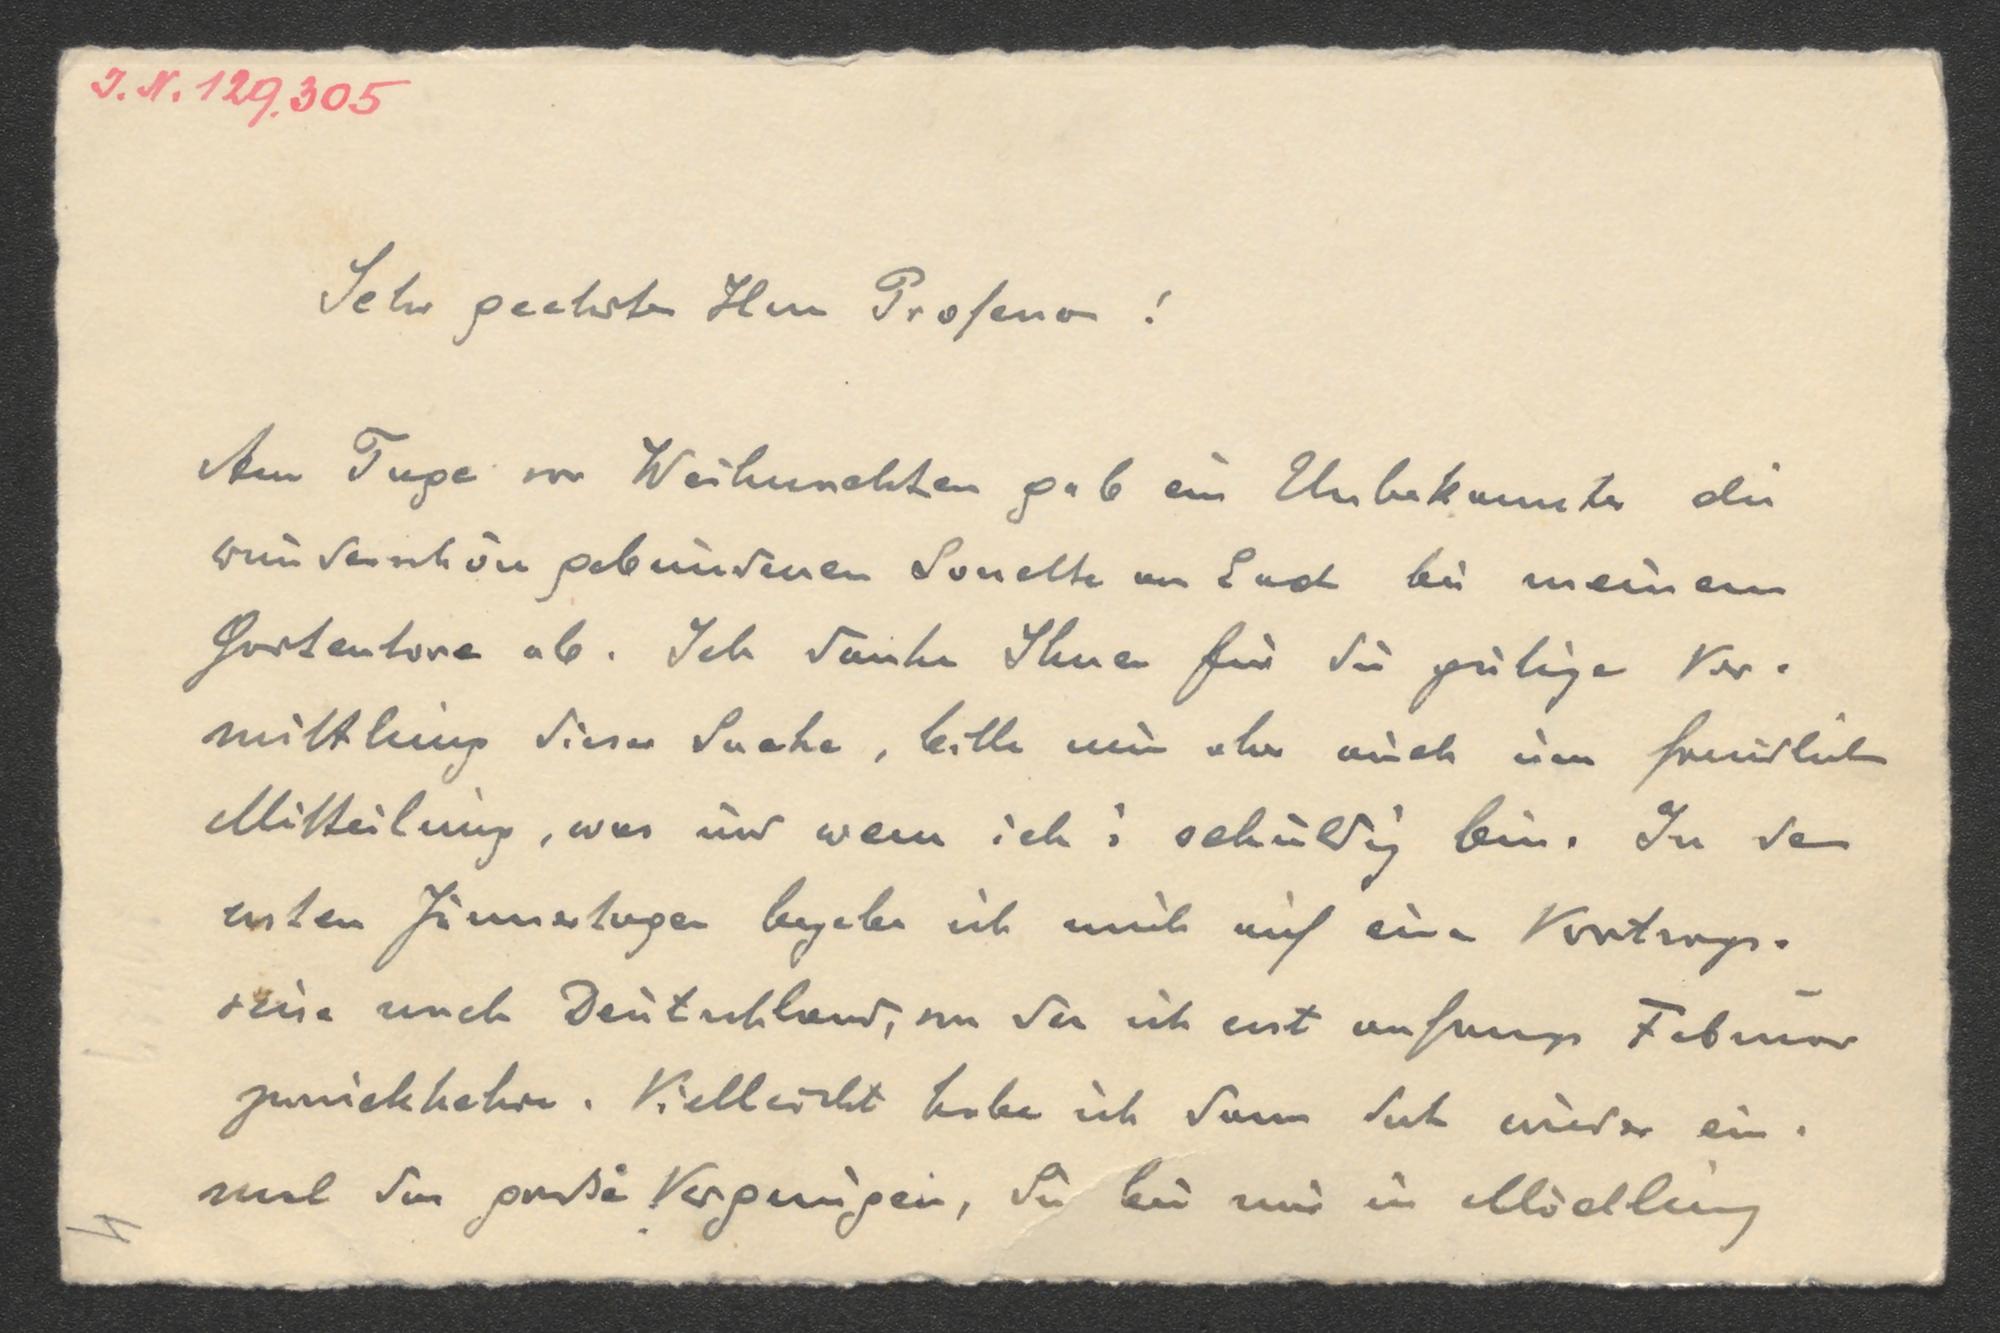 I. N. 129.305
Sehr geehrter Herr Professor !
Am Tage vor Weihnachten gab ein Unbekannter die
wunderschön gebundenen Sonette an Ead bei meinem
Gartentore ab. Ich danke Ihnen für die gütige Ver-
mittlung dieser Sache, bitte nun aber auch um freundliche
Mitteilung, was und wem ich schuldig bin. In den
ersten Jännertagen begebe ich mich auf eine Vortrags-
reise nach Deutschland, von der ich erst anfangs Februar
zurückkehre. Vielleicht habe ich dann doch wieder ein-
mal das große Vergnügen, Sie bei mir in Mödling